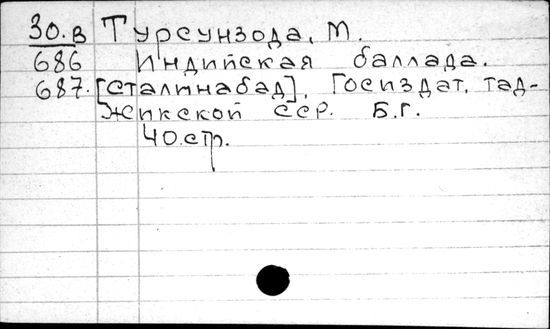 30.В Турсунзода, М.
686 Индийская баллада.
687. [Сталинабад], Госиздат. Тад-
жикской ССР. Б.Г.
40.стр.